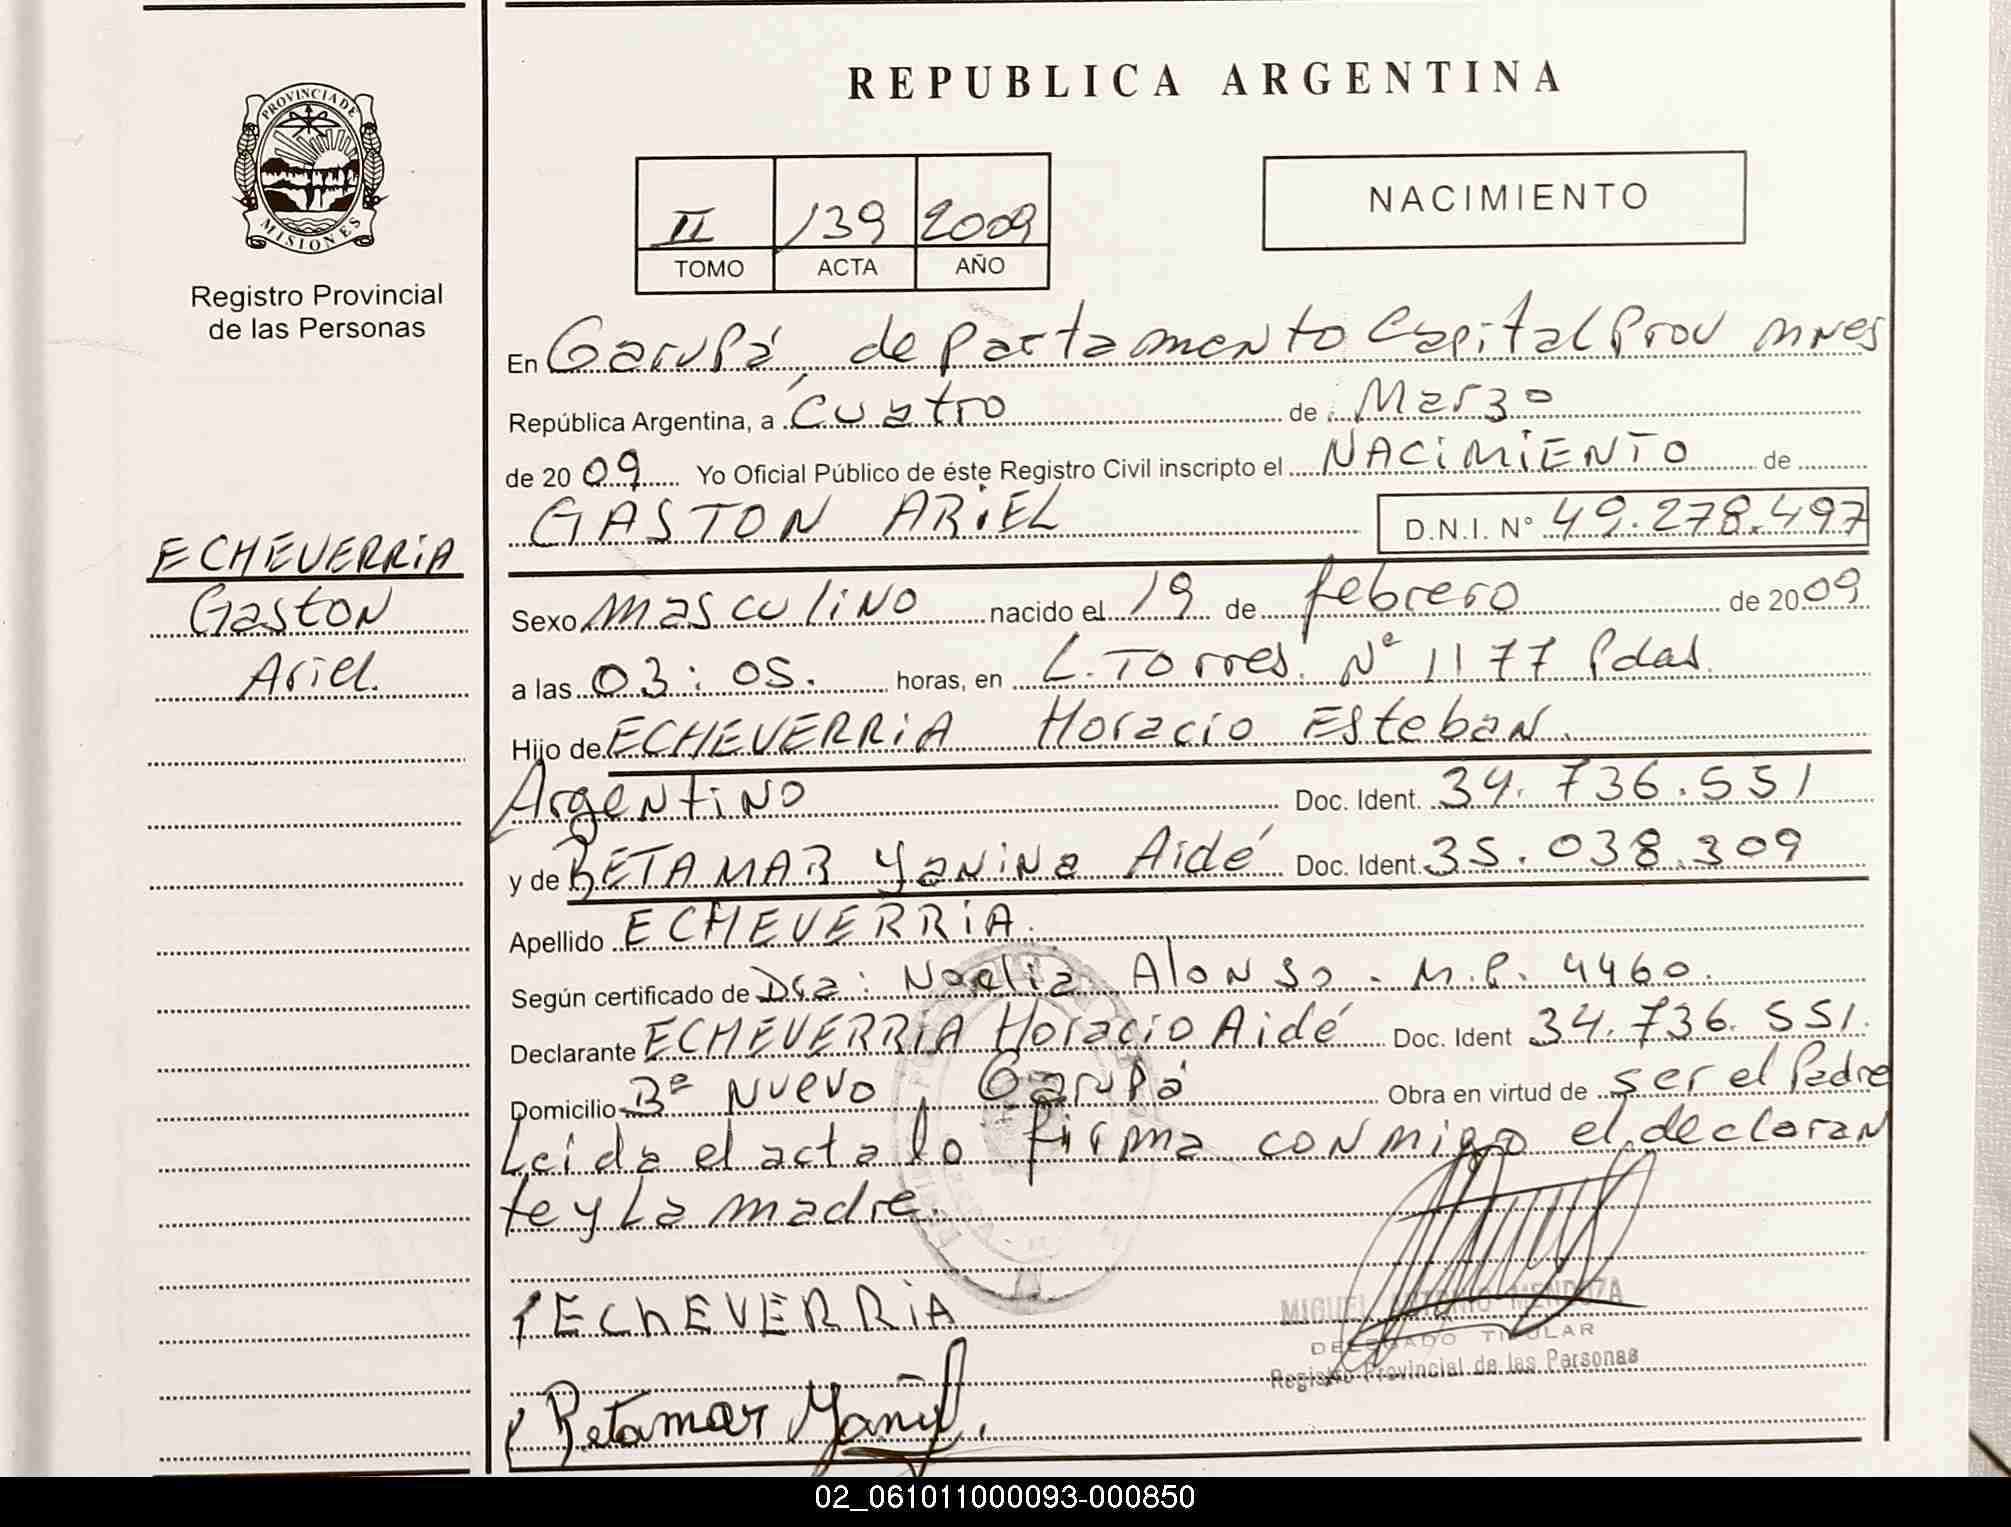 PROVINCIA DE
MISIONES
Registro Provincial
de las Personas
ECHEVERRiA
Gaston
Ariel.
REPUBLICA ARGENTINA
II 139 2009
TOMO ACTA AÑO
NACIMIENTO
En Garupá, departamento Capital Prov mnes
República Argentina, a Cuatro de Marzo
de 2009 Yo Oficial Público de éste Registro Civil inscripto el NACiMiENTO de
GASTON ARiEL D.N.I. N° 49.278.497
Sexo Masculino nacido el 19 de febrero de 2009
a las 03:05. horas, en L. Torres. N° 1177 Pdas.
Hijo de ECHEVERRiA Horacio Esteban.
Argentino Doc. Ident. 34.736.551
y de BETAMAR Yanina Aidé Doc. Ident. 35.038.309
Apellido ECHEVERRiA.
Según certificado de Dra: Noelia Alonso - M.P. 4460.
Declarante ECHEVERRiA Horacio Aidé Doc. Ident 34.736.551.
Domicilio B° Nuevo Garupá Obra en virtud de ser el Padre
Leida el acta lo firma conmigo el declaran
te y La madre.
EChEVERRiA
MIGUEL ANTONIO MENDOZA
DELEGADO TITULAR
Registro Provincial de las Personas
Betamar
02_061011000093-000850